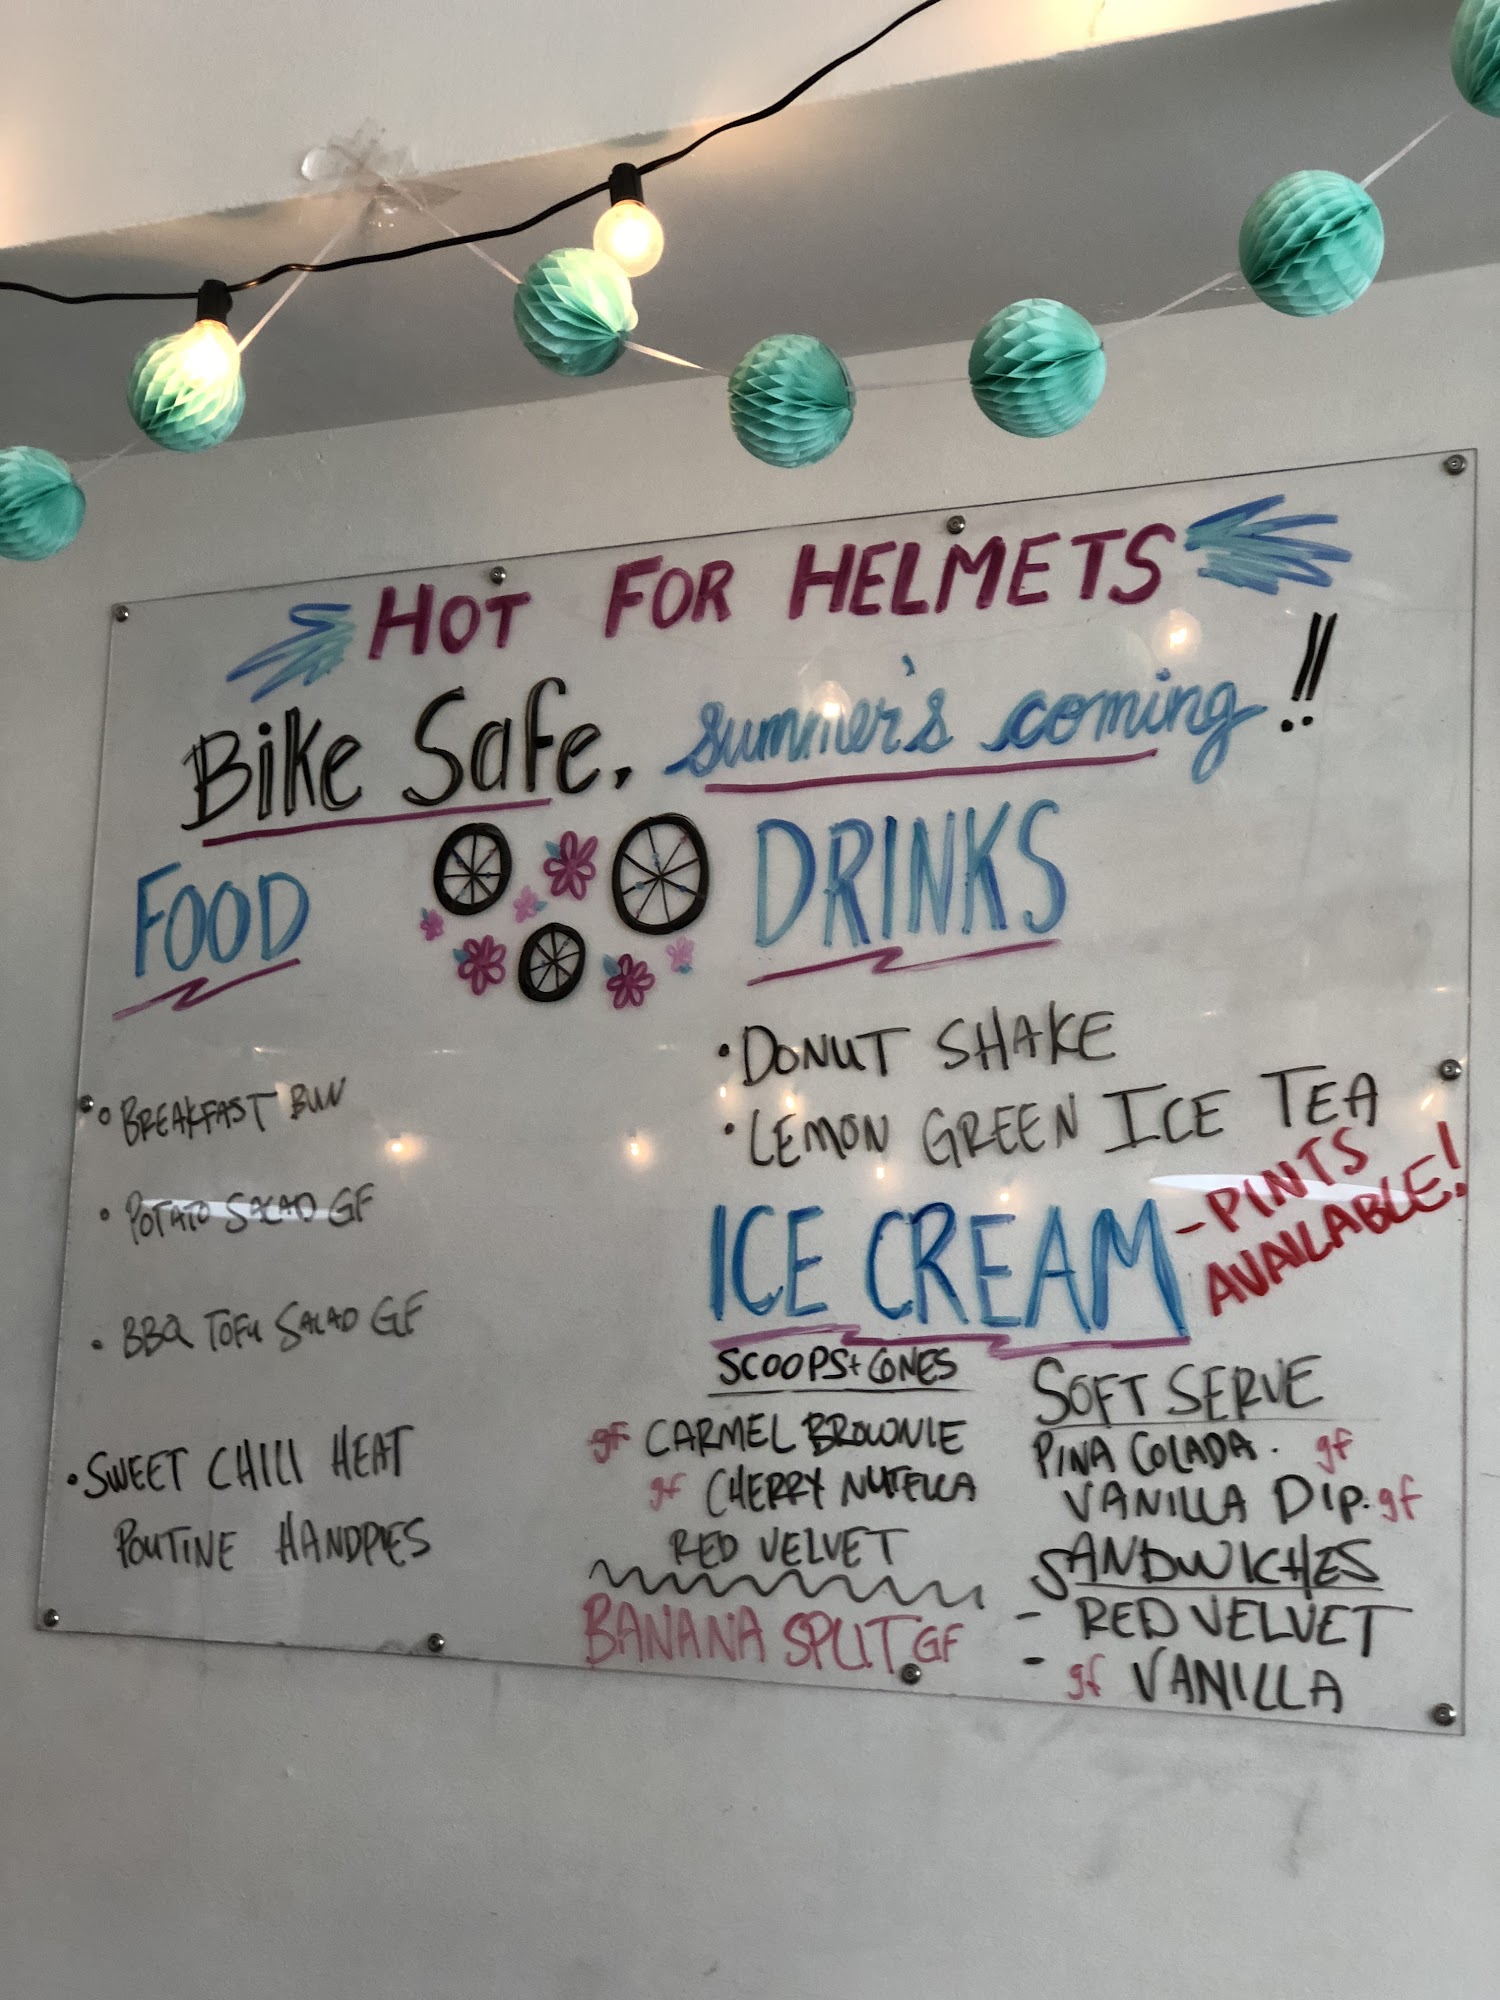 HOT FOR HELMETS
Bike Safe, summer's coming!!
FOOD
• BREAKFAST BUN
• POTATO SALAD GF
• BBQ TOFU SALAD GF
• SWEET CHILI HEAT
POUTINE HANDPIES
DRINKS
• DONUT SHAKE
• LEMON GREEN ICE TEA
ICE CREAM
- PINTS
AVAILABLE!
SCOOPS + CONES
gf CARMEL BROWNIE
gf CHERRY NUTELLA
RED VELVET
BANANA SPLIT GF
SOFT SERVE
PINA COLADA. gf
VANILLA DIP. gf
SANDWICHES
- RED VELVET
- gf VANILLA